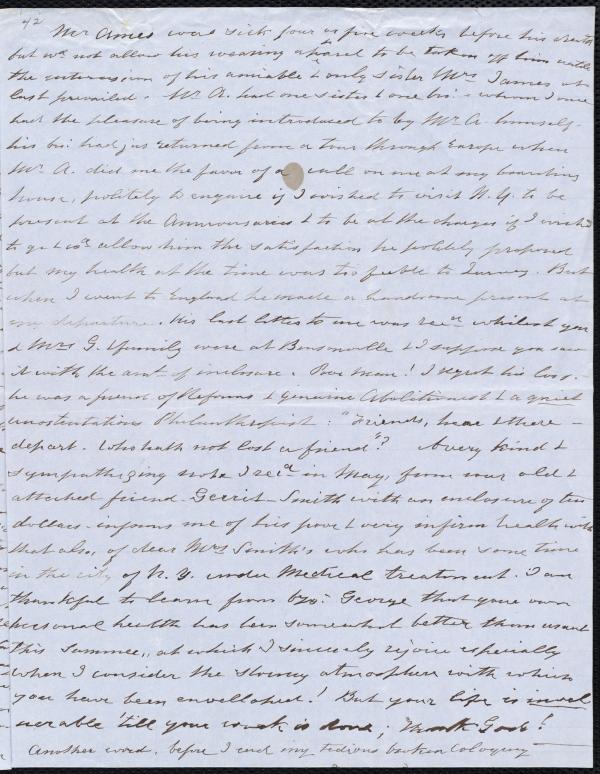 42
Mr Ames was sick four or five weeks before his death
but wd not allow his wearing aparel to be taken off him until
the intercession of his amiable & only sister Mrs James at
last prevailed. Mr A. had one sister & one bro: - whom I once
had the pleasure of being introduced to by Mr A. himself -
his bro: had jus returned from a tour through Europe when
Mr A. did me the favor of a call on me at my boarding
house, politely to enquire if I wished to visit N.Y. to be
present at the Anniversaries & to be at the charges if I wish'd
to go & wd allow him the satisfaction he politely proposed
but my health at the time was too feeble to Journey. But
when I went to England he made a handsome present at
my departure. His last letter to me was recd whilst you
& Mrs G. & family were at Bensonville & I suppose you saw
it with the amt of inclosure. Poor man! I regret his loss.
he was a friend of Reforms & Genuine Abolitionist & a quiet
unostentatious Philanthropist: "Friends, here & there -
depart. Who hath not lost a friend"? A very kind &
sympathizing note I recd in May, from our old &
attached friend - Gerrit - Smith with an enclosure of ten
dollars - informs me of his poor & very infirm health with
that also, of dear Mrs Smith's who has been some time
in the city of N. Y. under Medical treatment. I am
thankful to learn from bro: George that your own
personal health has been somewhat better than usual
this Summer, at which I sincerely rejoice especially
when I consider the stormy atmosphere with which
you have been envellophed! But your life is invul
nerable 'till your work is done; thank God!
Another word, before I end my tedious broken Coloquy -